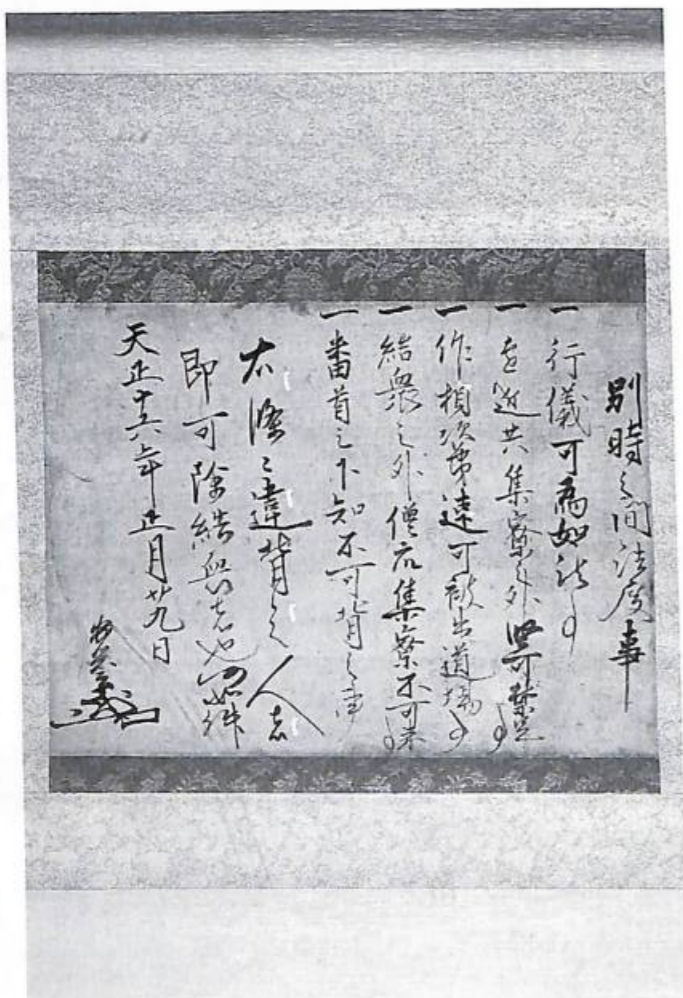 別時之間法度事
一行儀可為如法事
一 共集寮之外 可禁足事
一作相次第速可被出道場事
一結衆之外僧衆集寮不可来事
一番首之下知不可背之事
右條々違背之人者
即可除結衆者也仍如件
天正十六年正月廿九日